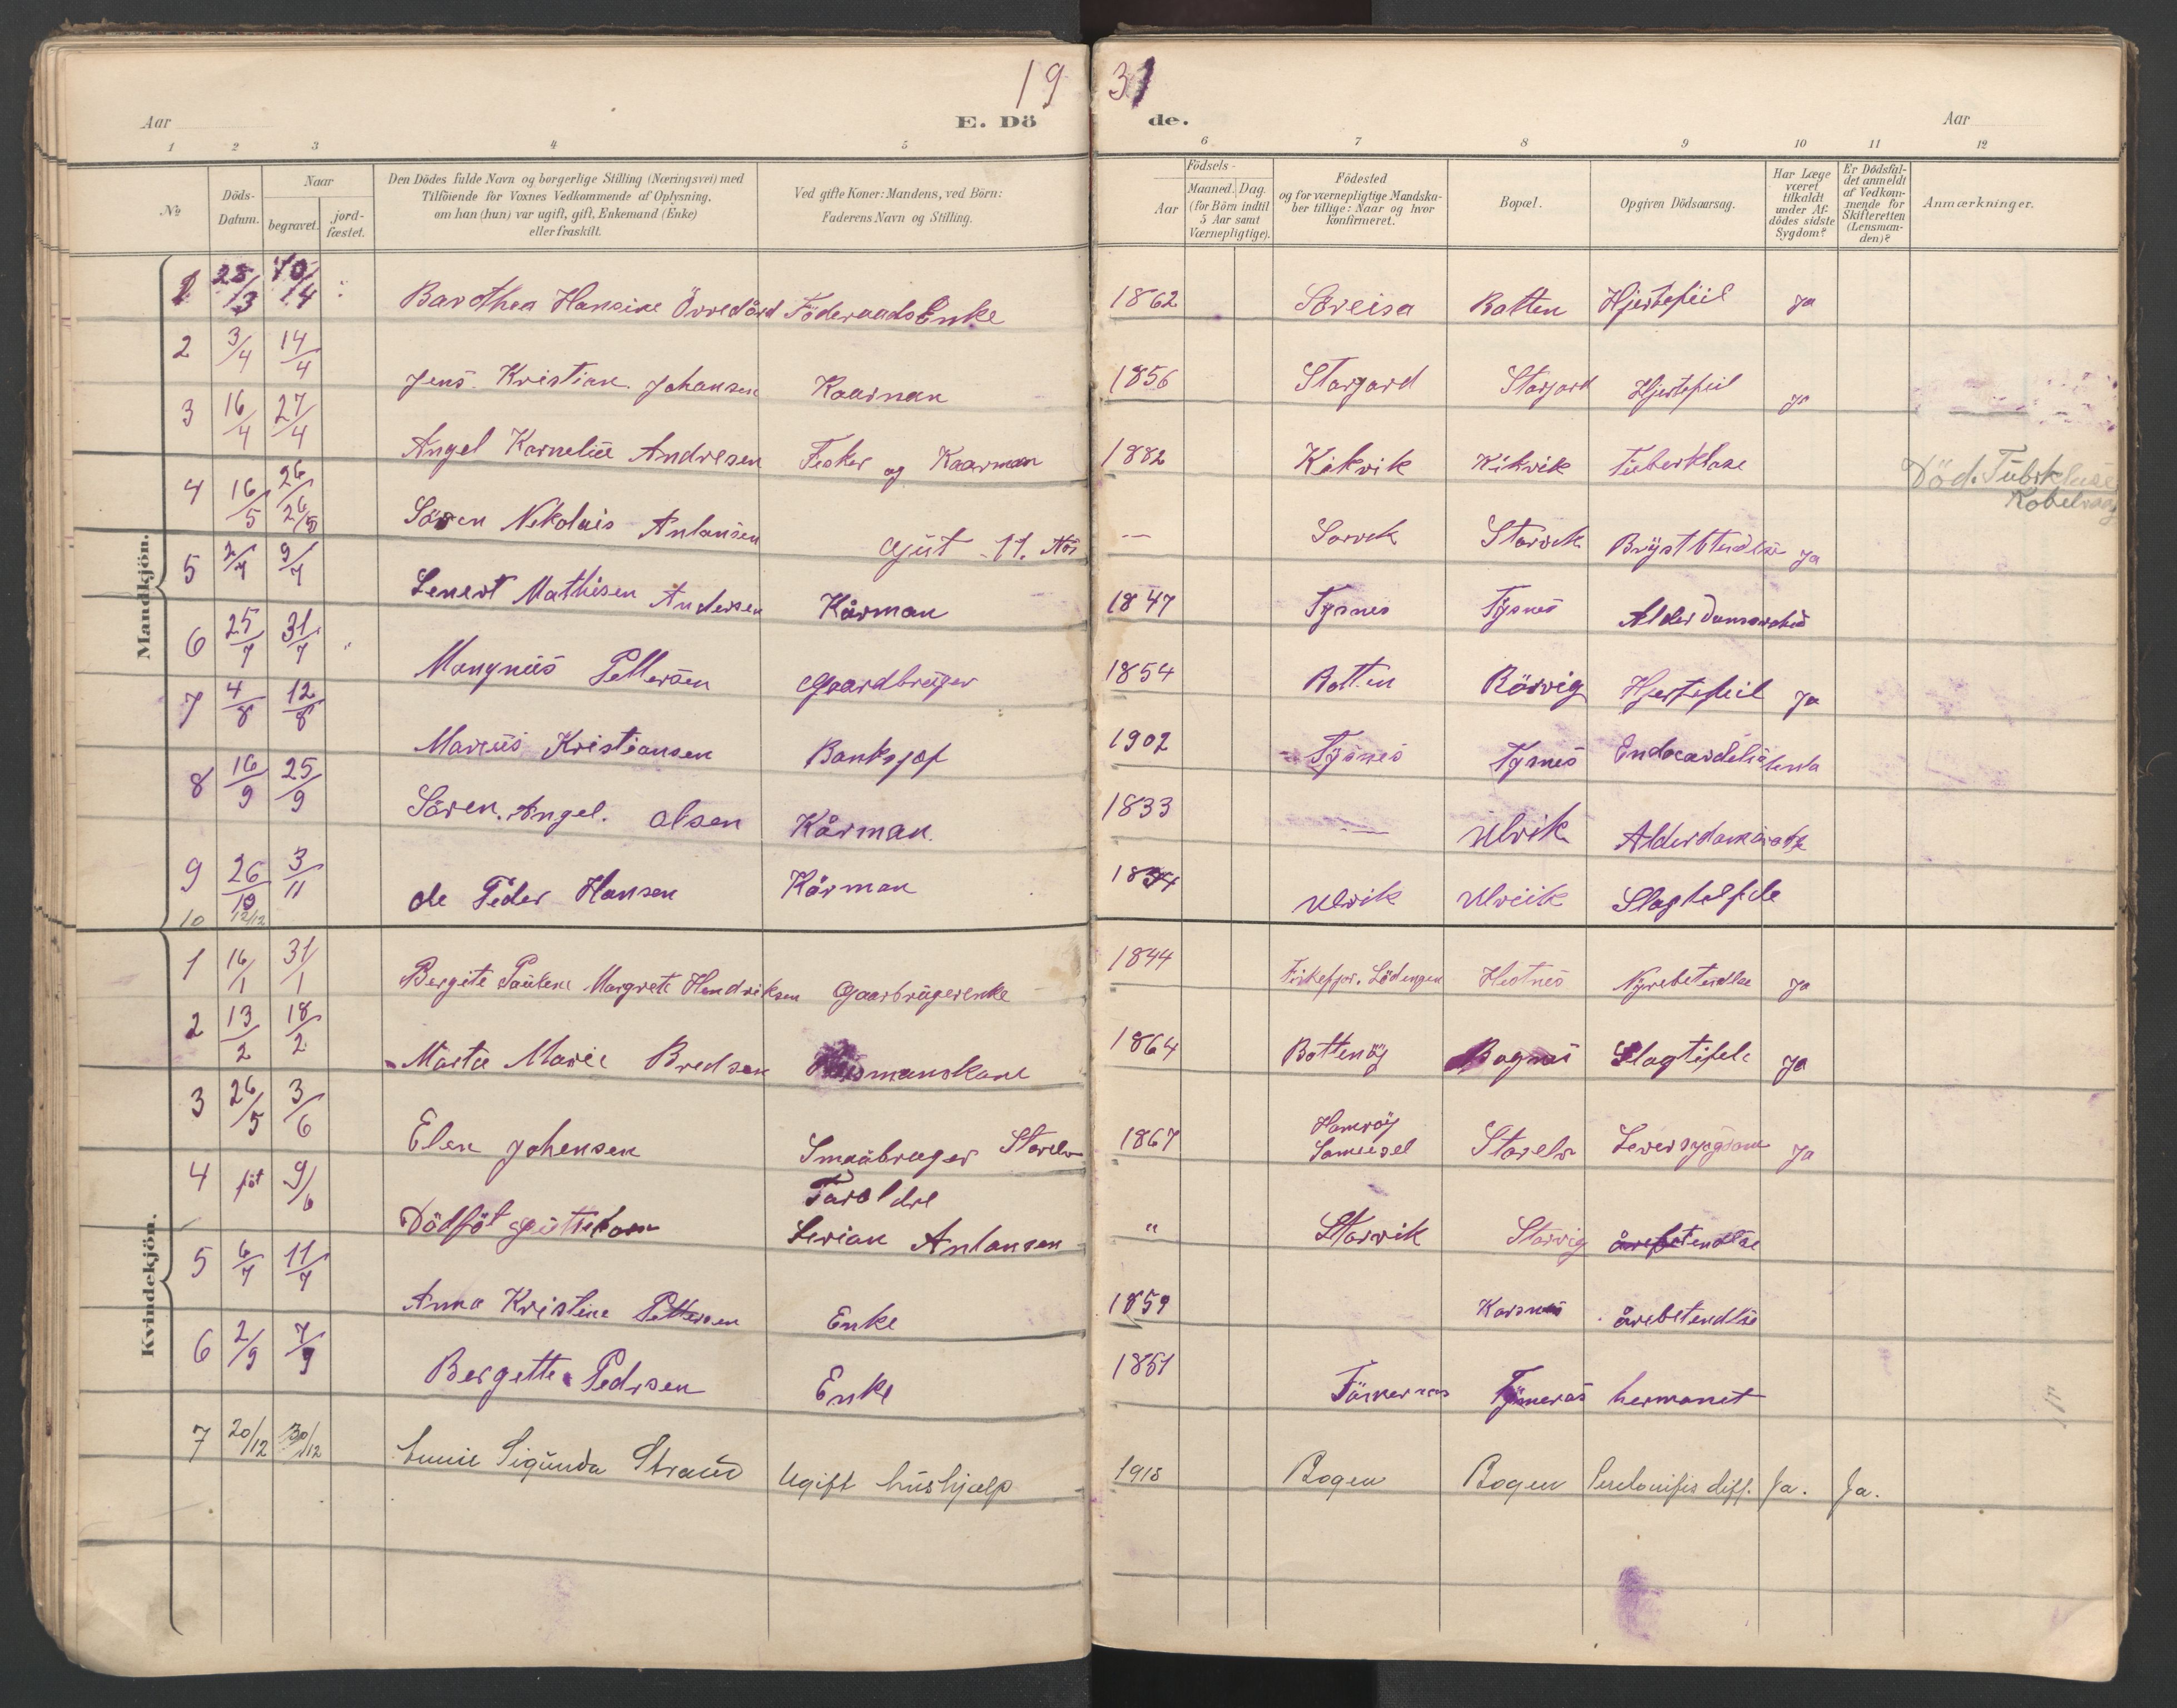 19 31
Aar E. Dö de. Aar
1 2 3 4 5 6 7 8 9 10 11 12
№
Döds-Datum.
Naar
begravet.
jord-fæstet.
Den Dödes fulde Navn og borgerlige Stilling (Næringsvei) med
Tilföiende for Voxnes Vedkommende af Oplysning,
om han (hun) var ugift, gift, Enkemand (Enke)
eller fraskilt.
Ved gifte Koner: Mandens, ved Börn:
Faderens Navn og Stilling.
Födsels-
Aar
Maaned. Dag.
(for Börn indtil
5 Aar samt
Værnepligtige).
Födested
og for værnepligtige Mandska-
ber tillige: Naar og hvor
konfirmeret.
Bopæl.
Opgiven Dödsaarsag.
Har Læge
været
tilkaldt
under Af-
dödes sidste
Sygdom?
Er Dödsfal-
det anmeldt
af Vedkom-
mende for
Skifteretten
(Lensman-
den)?
Anmærkninger.
Mandkjön.
1 28/13 10/14 Barothea Hansine Örredård Föderaads Enke 1862 Söreisa Botten Hjertefeil Ja
2 3/4 14/4 Jens Kristian Johansen Kaarman 1856 Storjord Storjord Hjertefeil Ja
3 16/4 27/4 Angel Kornelius Andresen Fisker og Kaarman 1882 Kikvik Kikvik Tuberklose Död. Tubrkluse
4 16/5 26/26/5 Sören Nikolais Antonsen Gut 11. — Storvik Brystbtendlse Ja
5 2/7 9/7 Lenert Mathisen Andersen Kårman 1847 Tysnes Tysnes Alderdomsvækid
6 25/7 31/7 Mangnus Pettersen Gaardbruger 1854 Botten Rörvig Hjertefeil Ja
7 4/8 12/8 Marius Kristiansen Banksjef 1902 Tysnes Tysnes
8 16/9 25/9 Sören. Angel. Olsen Kårman. 1833 — Ulvik
9 26/10 3/11 Ole Peder Hansen Kårman 1834 Ulvik Ulvik
10 12/12
Kvindekjön.
1 16/1 31/1 Bergite Paulene Margrete Hendriksen Gaarbrugerenke 1844 Lödengen Hestnes Nyrebetendlse Ja
2 13/2 18/2 Marta Marie Bredsen 1864 Bottenöy Bognes Slagtifele Ja
3 26/5 3/6 Elen Johensen Smaabruger Storelv 1867 Hamröy Storelv Leversygdom Ja
4 föt 9/6 Dödföt guttebarn Foreldre
Serian Antonsen " Storvik Storvig årebetendlse
5 6/7 11/7 Anna Kristine Pettersen Enke 1859 Korsnes årebetendlse
6 2/9 7/9 Bergette Pedrsen Enke 1851
7 20/12 30/12 Sigunda Strand Ugift hushjælp 1918 Bogen Bogen diff. Ja. Ja.